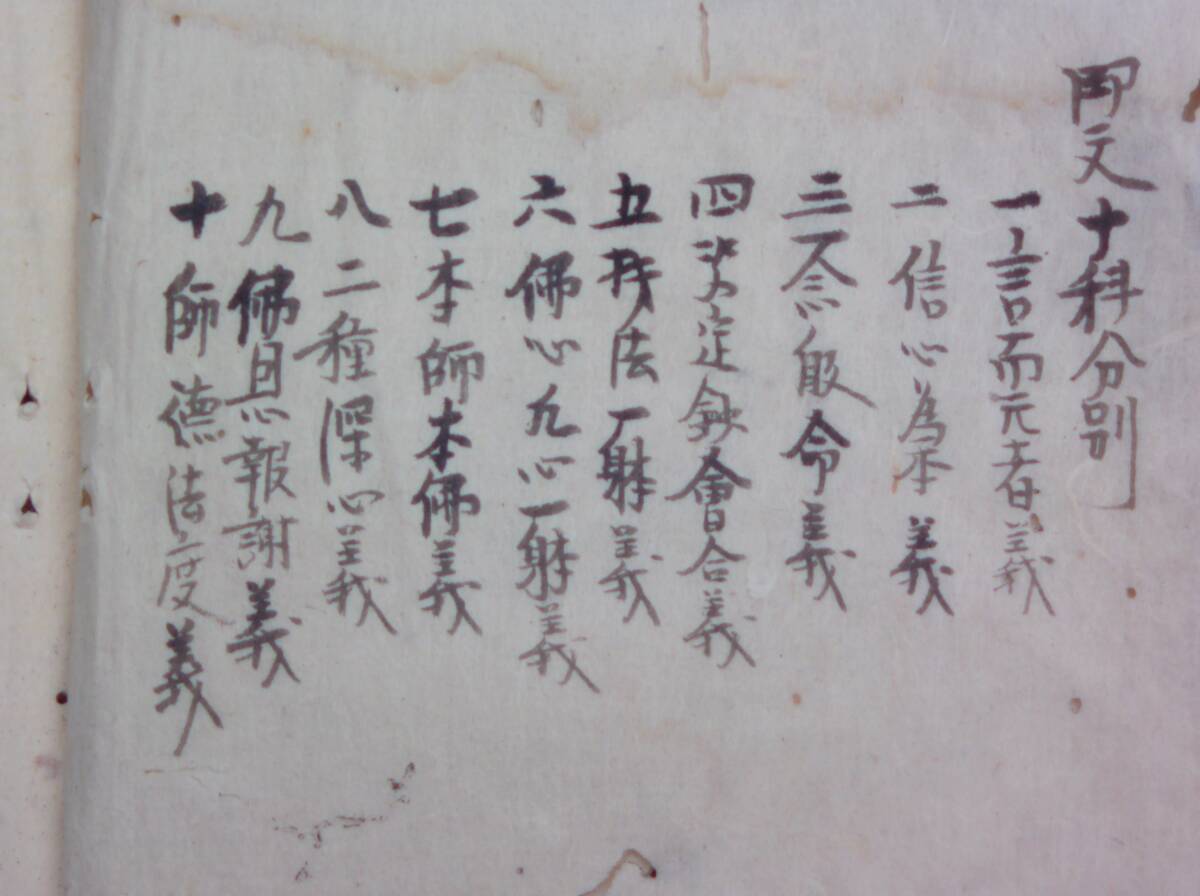 御文十科分別
一 言而元者義
二 信心為本義
三 一念皈命義
四 決定鈔會合義
五 机法一躰義
六 佛心凡心一躰義
七 本師本佛義
八 二種深心義
九 佛恩報謝義
十 師德法度義